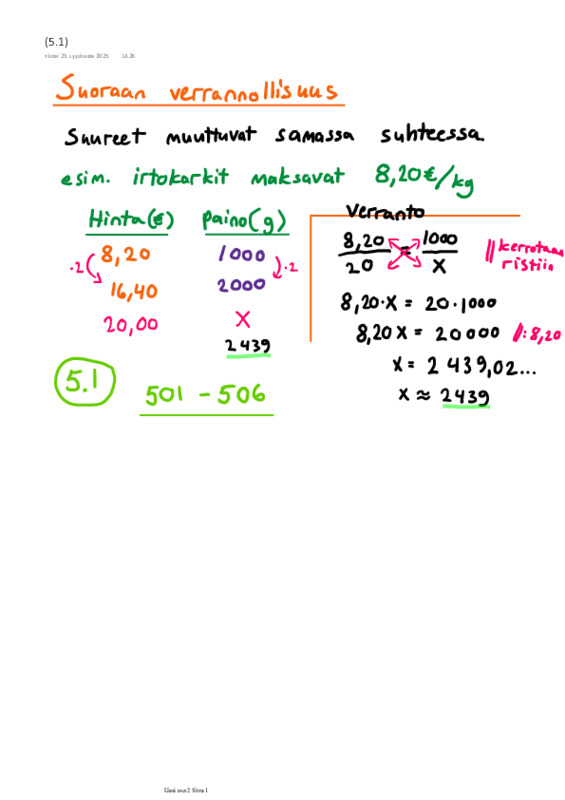 (5.1)
tiistai 23. syyskuuta 2025 14.26
Suoraan verrannollisuus
Suureet muuttuvat samassa suhteessa.
esim. irtokarkit maksavat 8,20€/kg
Hinta(€) Paino(g)
8,20 1000
·2 ·2
16,40 2000
20,00 X
2439
Verranto
8,20/20 = 1000/X || kerrotaan ristiin
8,20·X = 20·1000
8,20X = 20000 ||:8,20
X = 2 439,02...
X ≈ 2439
5.1 501 - 506
Uusi osa 2 Sivu 1